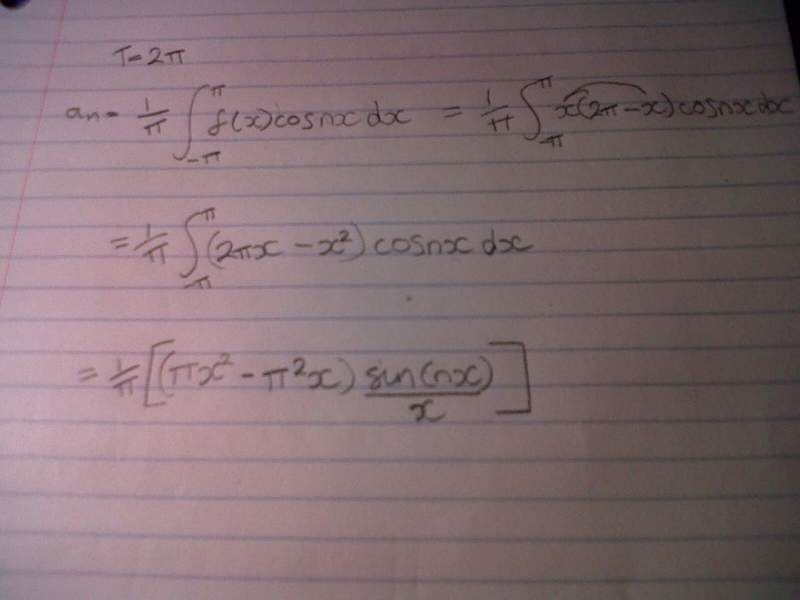 T=2π
an = 1/π ∫_{-π}^{π} f(x)cosnx dx = 1/π ∫_{-π}^{π} x(2π-x)cosnxdx
= 1/π ∫_{-π}^{π} (2πx - x²) cosnx dx
= 1/π [(πx² - π²x) sin(nx)/x]